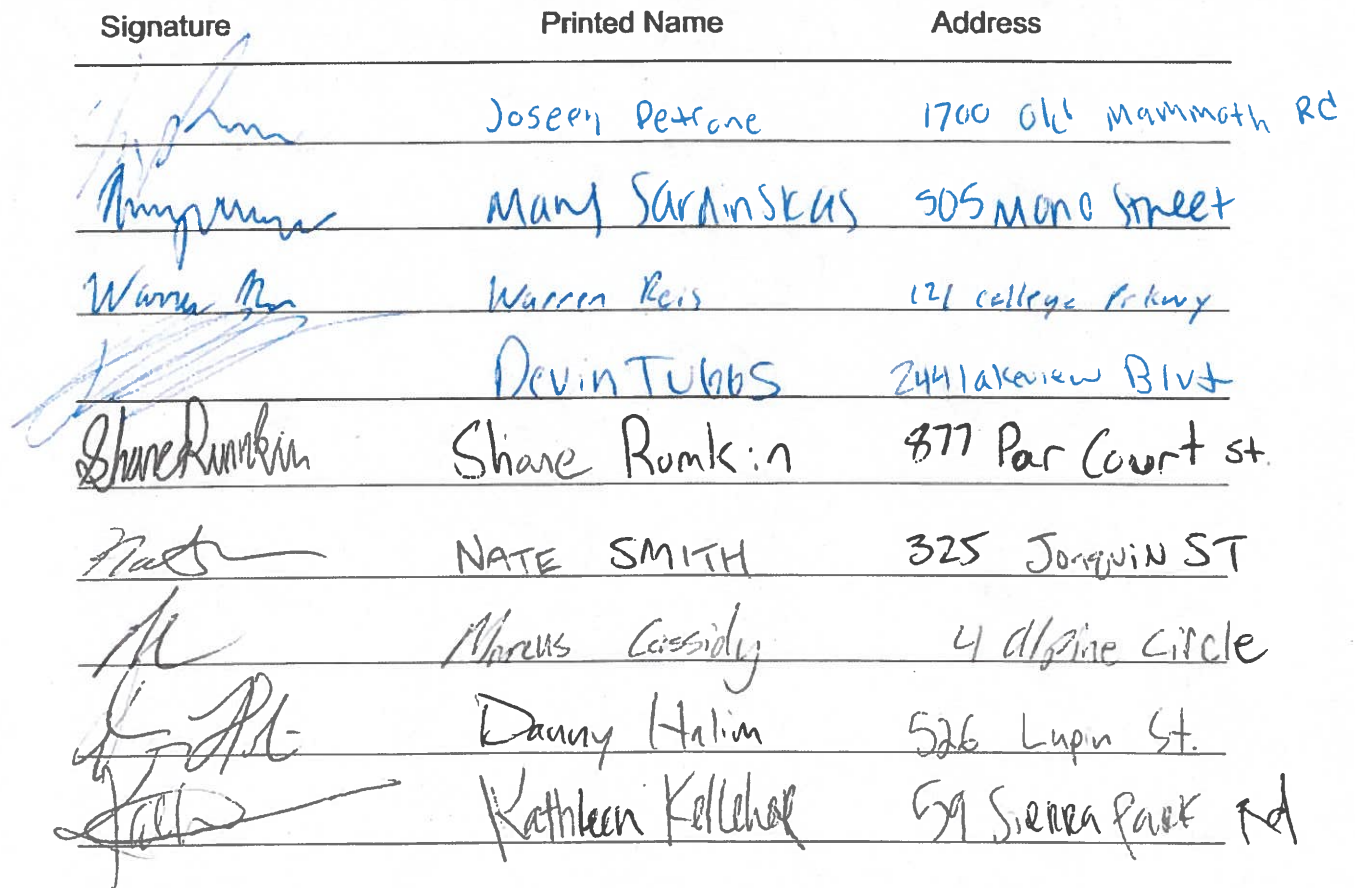 Signature Printed Name Address
Joseph Petrone 1700 Old Mammoth Rd
Mary Sardinskas 505 Mono Street
Warren Warren Reis 121 college Prkwy
Devin Tubbs 244 lakeview Blvd
Shane Rumkin Shane Romkin 877 Par Court St.
Nate SMITH 325 Joaquin ST
Marcus Cassidy 4 Alpine Circle
Danny Halim 526 Lupin St.
Kathleen Kelleher 59 Sierra Park Rd